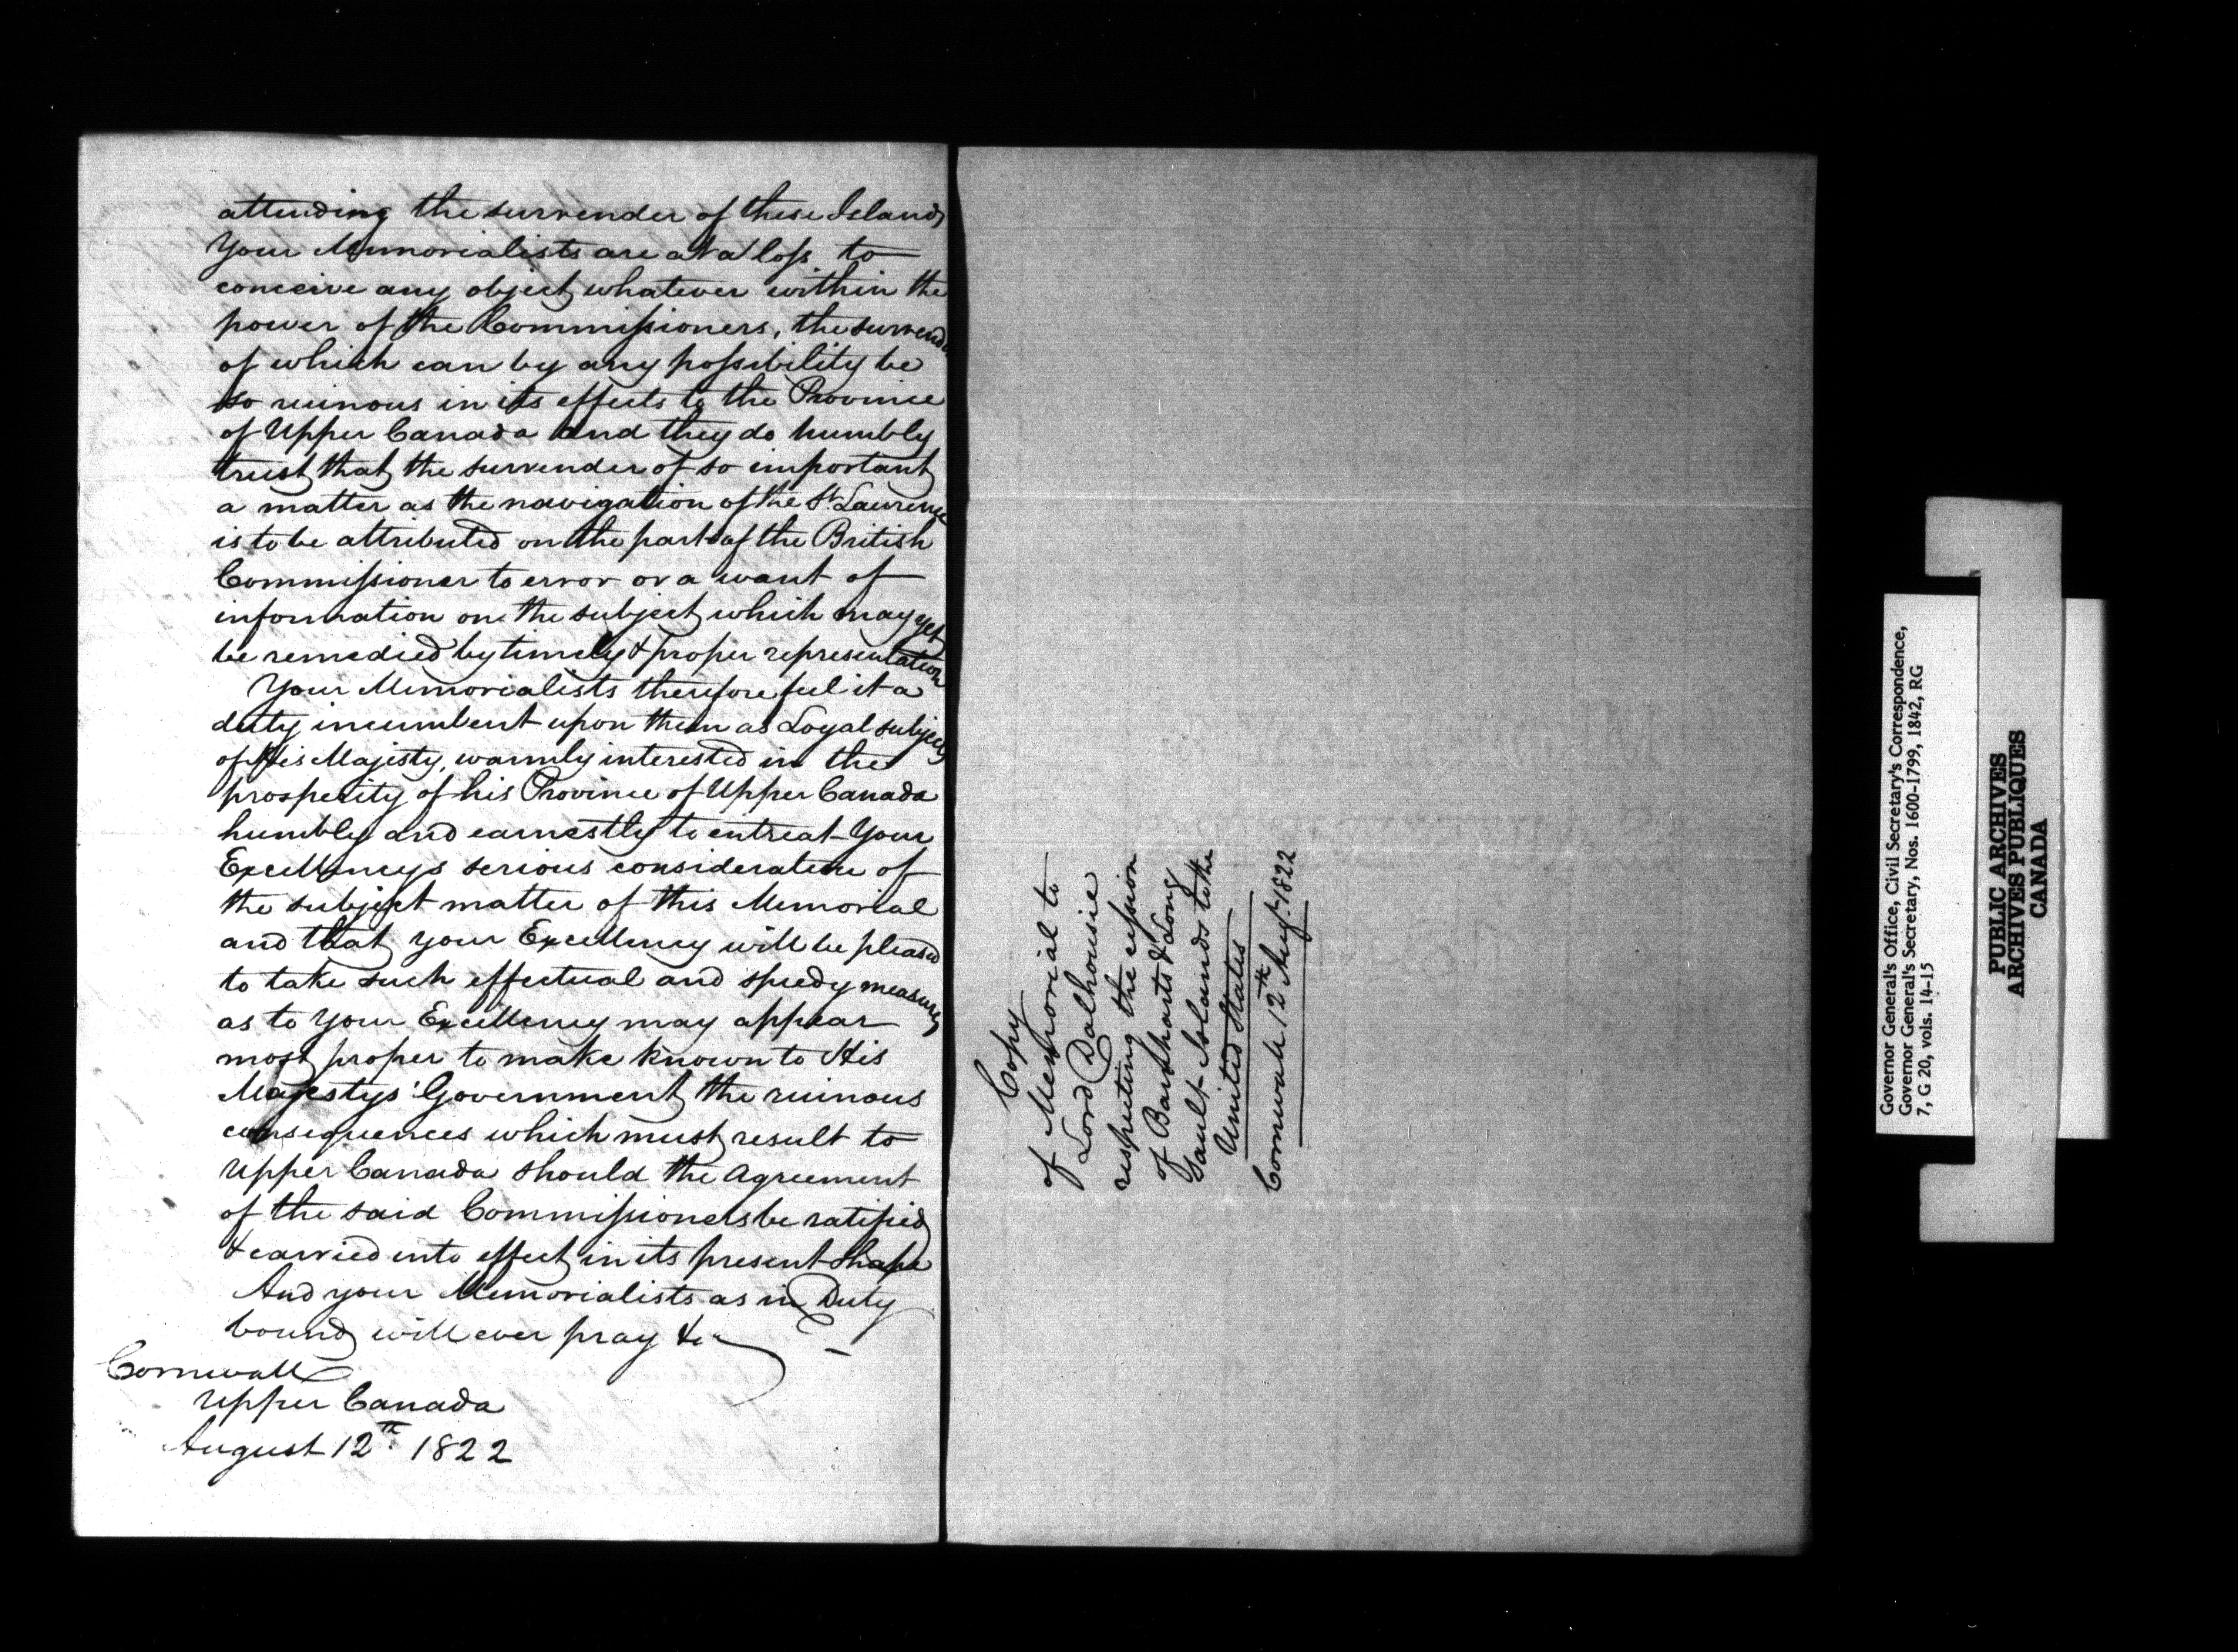 attending the surrender of these Islands
Your Memorialists are at a loss to
conceive any object whatever within the
power of the Commissioners, the surrender
of which can by any possibility be
so ruinous in its effects to the Province
of Upper Canada and they do humbly
trust that the surrender of so important
a matter as the navigation of the St. Lawrence
is to be attributed on the part of the British
Commissioner to error or a want of
information on the subject which may yet
be remedied by timely & proper representation
Your Memorialists therefore feel it a
duty incumbent upon them as Loyal subjects
of His Majesty, warmly interested in the
prosperity of his Province of Upper Canada
humbly and earnestly to entreat Your
Excellencys serious consideration of
the subject matter of this Memorial
and that your Excellency will be pleased
to take such effectual and speedy measures
as to Your Excellency may appear
most proper to make known to His
Majestys' Government the ruinous
consequences which must result to
Upper Canada should the Agreement
of the said Commissioners be ratified
& carried into effect in its present shape
And your Memorialists as in Duty
bound will ever pray &c
Cornwall
Upper Canada
August 12th. 1822
Copy
of Memorial to
Lord Dalhousie
respecting the cession
of Barnharts & Long
Sault Islands to the
United States
Cornwall 12th Augt. 1822
Governor General's Office, Civil Secretary's Correspondence,
Governor General's Secretary, Nos. 1600-1799, 1842, RG
7, G 20, vols. 14-15
PUBLIC ARCHIVES
ARCHIVES PUBLIQUES
CANADA